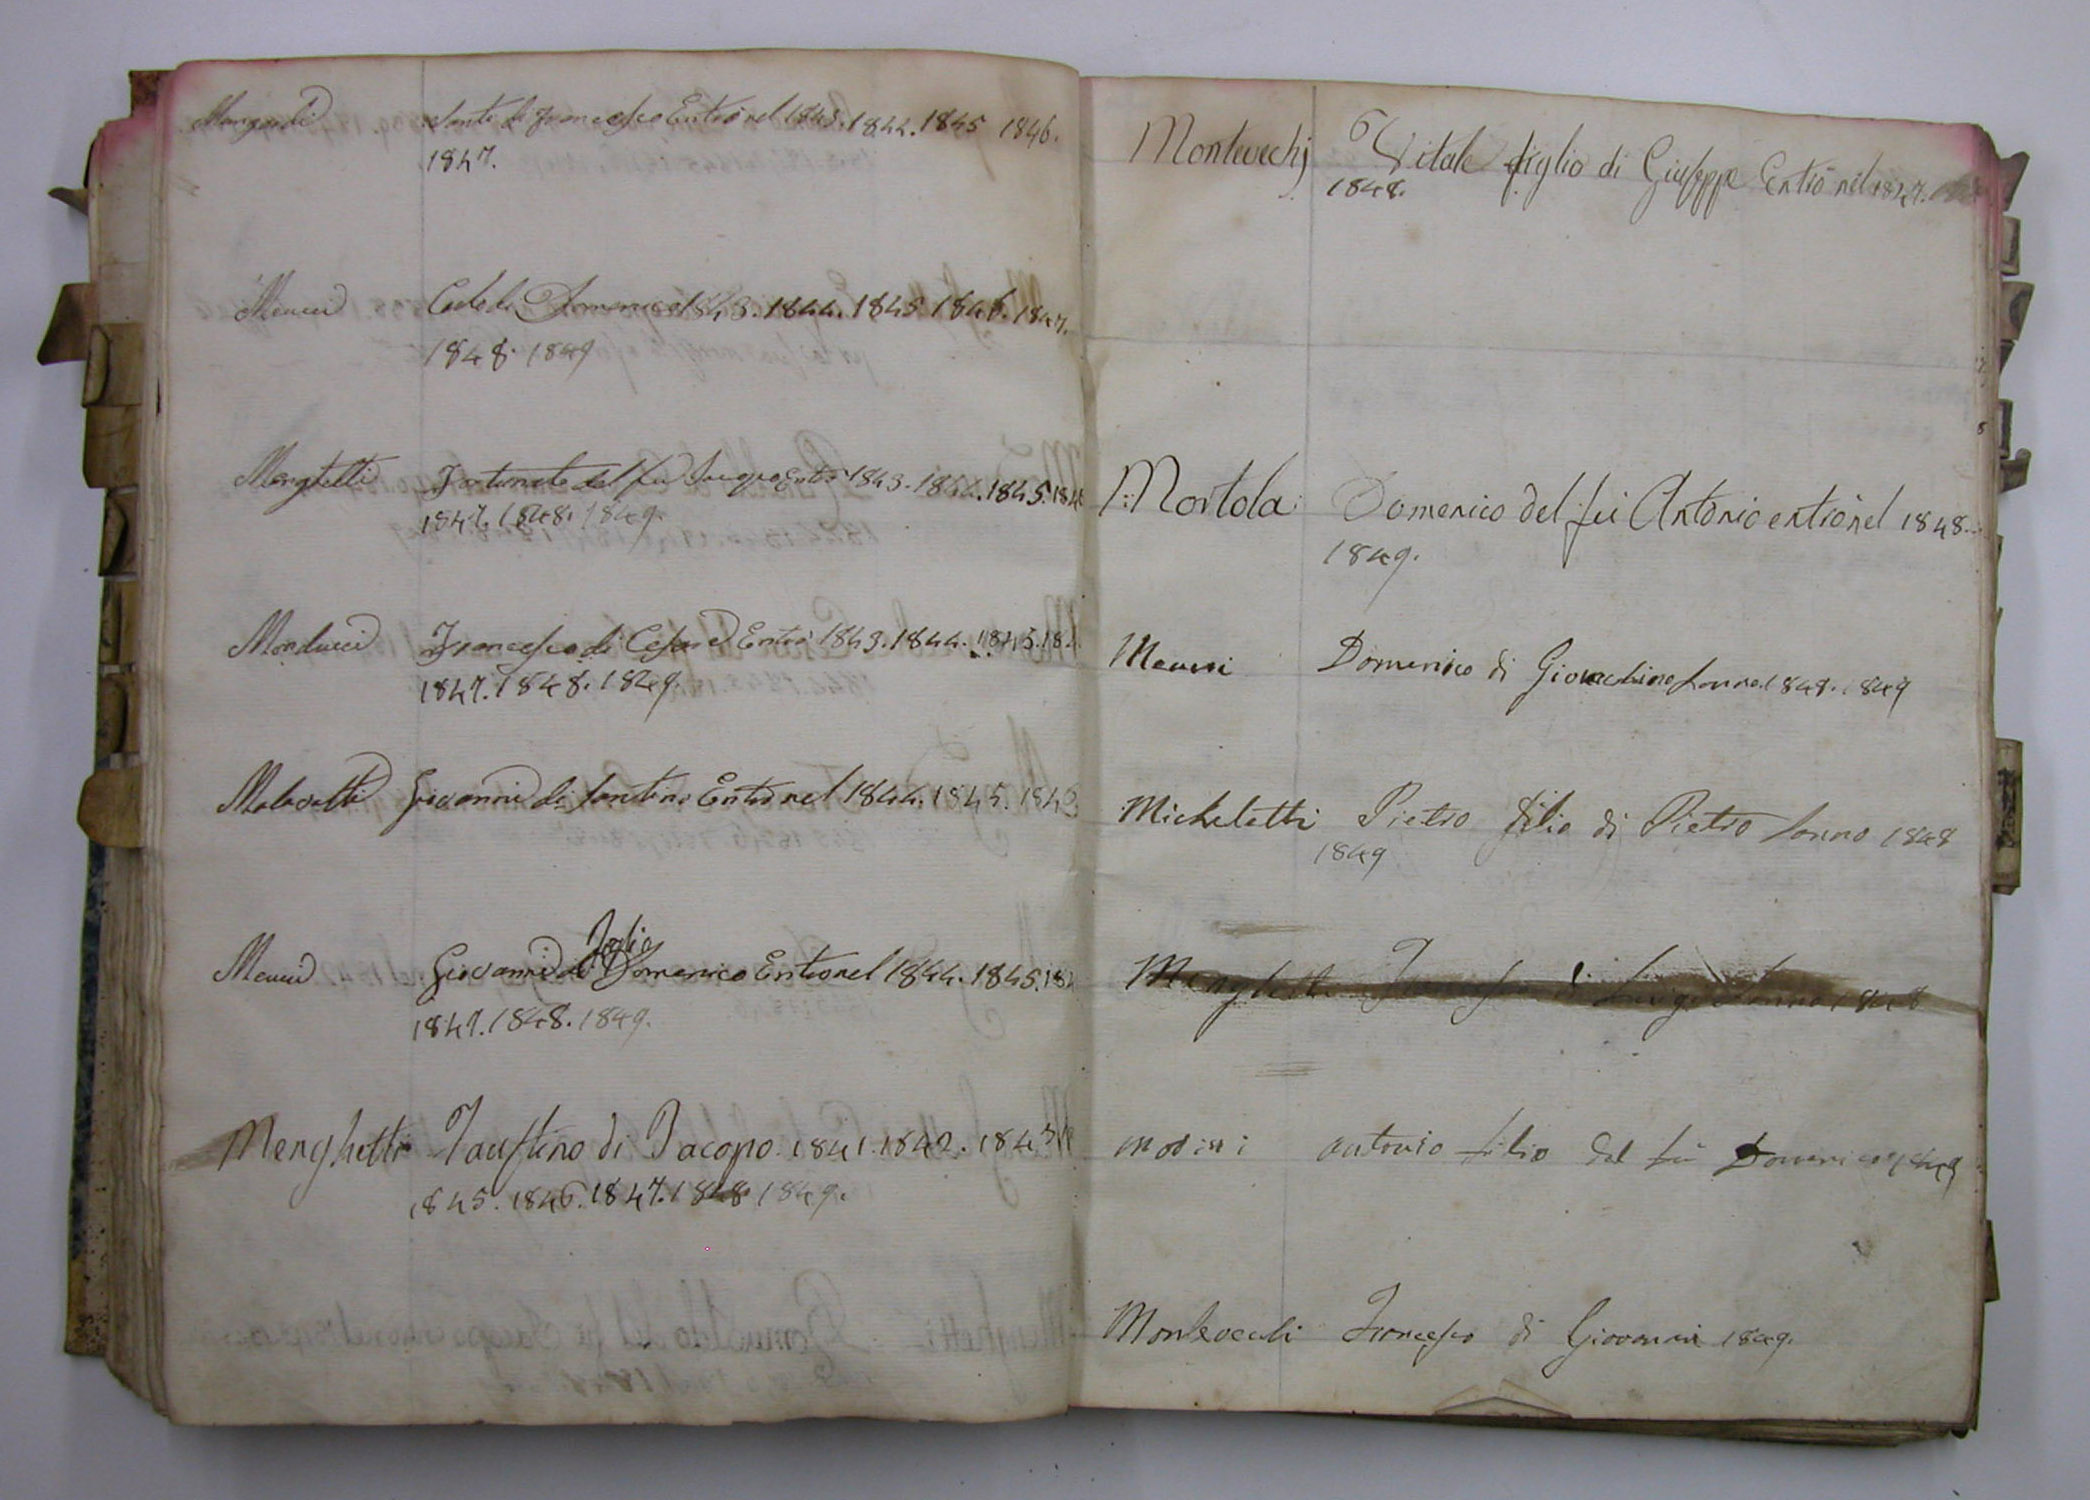 Mangardi Sante di Francesco Entrò nel 1843. 1844. 1845 1846.
1847.
Meucci Domenico 1843. 1844. 1845. 1846. 1847.
1848. 1849
Menghetti Fortunato del fu Entrò 1843. 1844. 1845. 1846
1847. 1848. 1849.
Monducci Francesco di Cesare Entrò 1843. 1844. 1845. 184
1847. 1848. 1849.
Giovanni di Santino Entrò nel 1844. 1845. 1846
figlio
Meucci Giovanni di Domenico Entrò nel 1844. 1845. 184
1847. 1848. 1849.
Menghetti Faustino di Jacopo. 1841. 1842. 1843
1845. 1846. 1847. 1848 1849.
Montevechj Vitale figlio di Giuseppe Entrò nel 1847.
1848.
Mortola Domenico del fu Antonio entrò nel 1848.
1849.
Meucci Domenico di Giovachino lanno 1848. 1849
Micheletti Pietro filio di Pietro lanno 1848
1849
Menghetti Francesco di Luigi lanno 1848
modini antonio filio del fu Domenico 1849
Montevechi Francesco di Giovanni 1849.